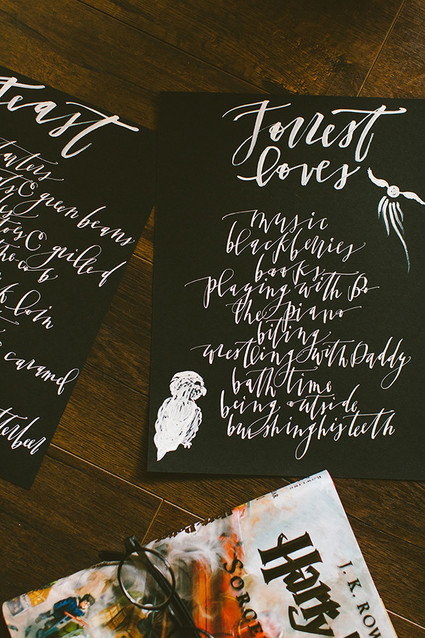 feast
tarters
green beans
grilled
loin
caramel
terbeer
Forrest
loves
music
blackberries
books
playing with Bo
the piano
biting
wrestling with Daddy
bath time
being outside
brushing his teeth
J. K. RO
Harry
SORC